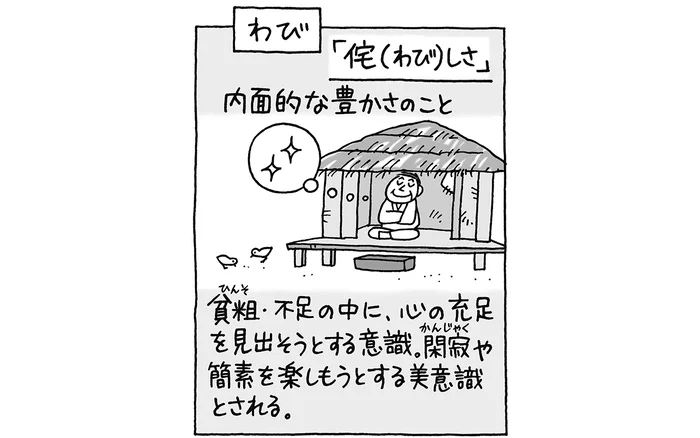 わび
「侘(わび)しさ」
内面的な豊かさのこと
ひんそ
貧粗・不足の中に、心の充足
を見出そうとする意識。閑寂や
かんじゃく
簡素を楽しもうとする美意識
とされる。